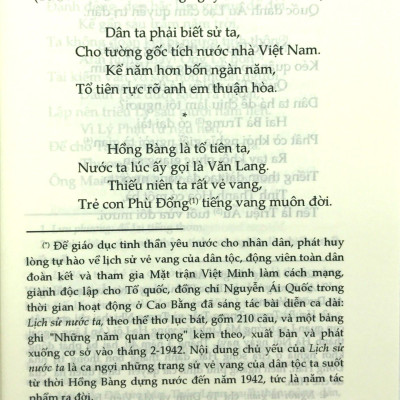 Dân ta phải biết sử ta,
Cho tường gốc tích nước nhà Việt Nam.
Kể năm hơn bốn ngàn năm,
Tổ tiên rực rỡ anh em thuận hòa.
*
Hồng Bàng là tổ tiên ta,
Nước ta lúc ấy gọi là Văn Lang.
Thiếu niên ta rất vẻ vang,
Trẻ con Phù Đổng⁽¹⁾ tiếng vang muôn đời.
(*) Để giáo dục tinh thần yêu nước cho nhân dân, phát huy
lòng tự hào về lịch sử vẻ vang của dân tộc, động viên toàn dân
đoàn kết và tham gia Mặt trận Việt Minh làm cách mạng,
giành độc lập cho Tổ quốc, đồng chí Nguyễn Ái Quốc trong
thời gian hoạt động ở Cao Bằng đã sáng tác bài diễn ca dài:
Lịch sử nước ta, theo thể thơ lục bát, gồm 210 câu, và một bảng
ghi "Những năm quan trọng" kèm theo, xuất bản và phát
xuống cơ sở vào tháng 2-1942. Nội dung chủ yếu của Lịch sử
nước ta là ca ngợi những trang sử vẻ vang của dân tộc ta suốt
từ thời Hồng Bàng dựng nước đến năm 1942, tức là năm tác
phẩm ra đời.